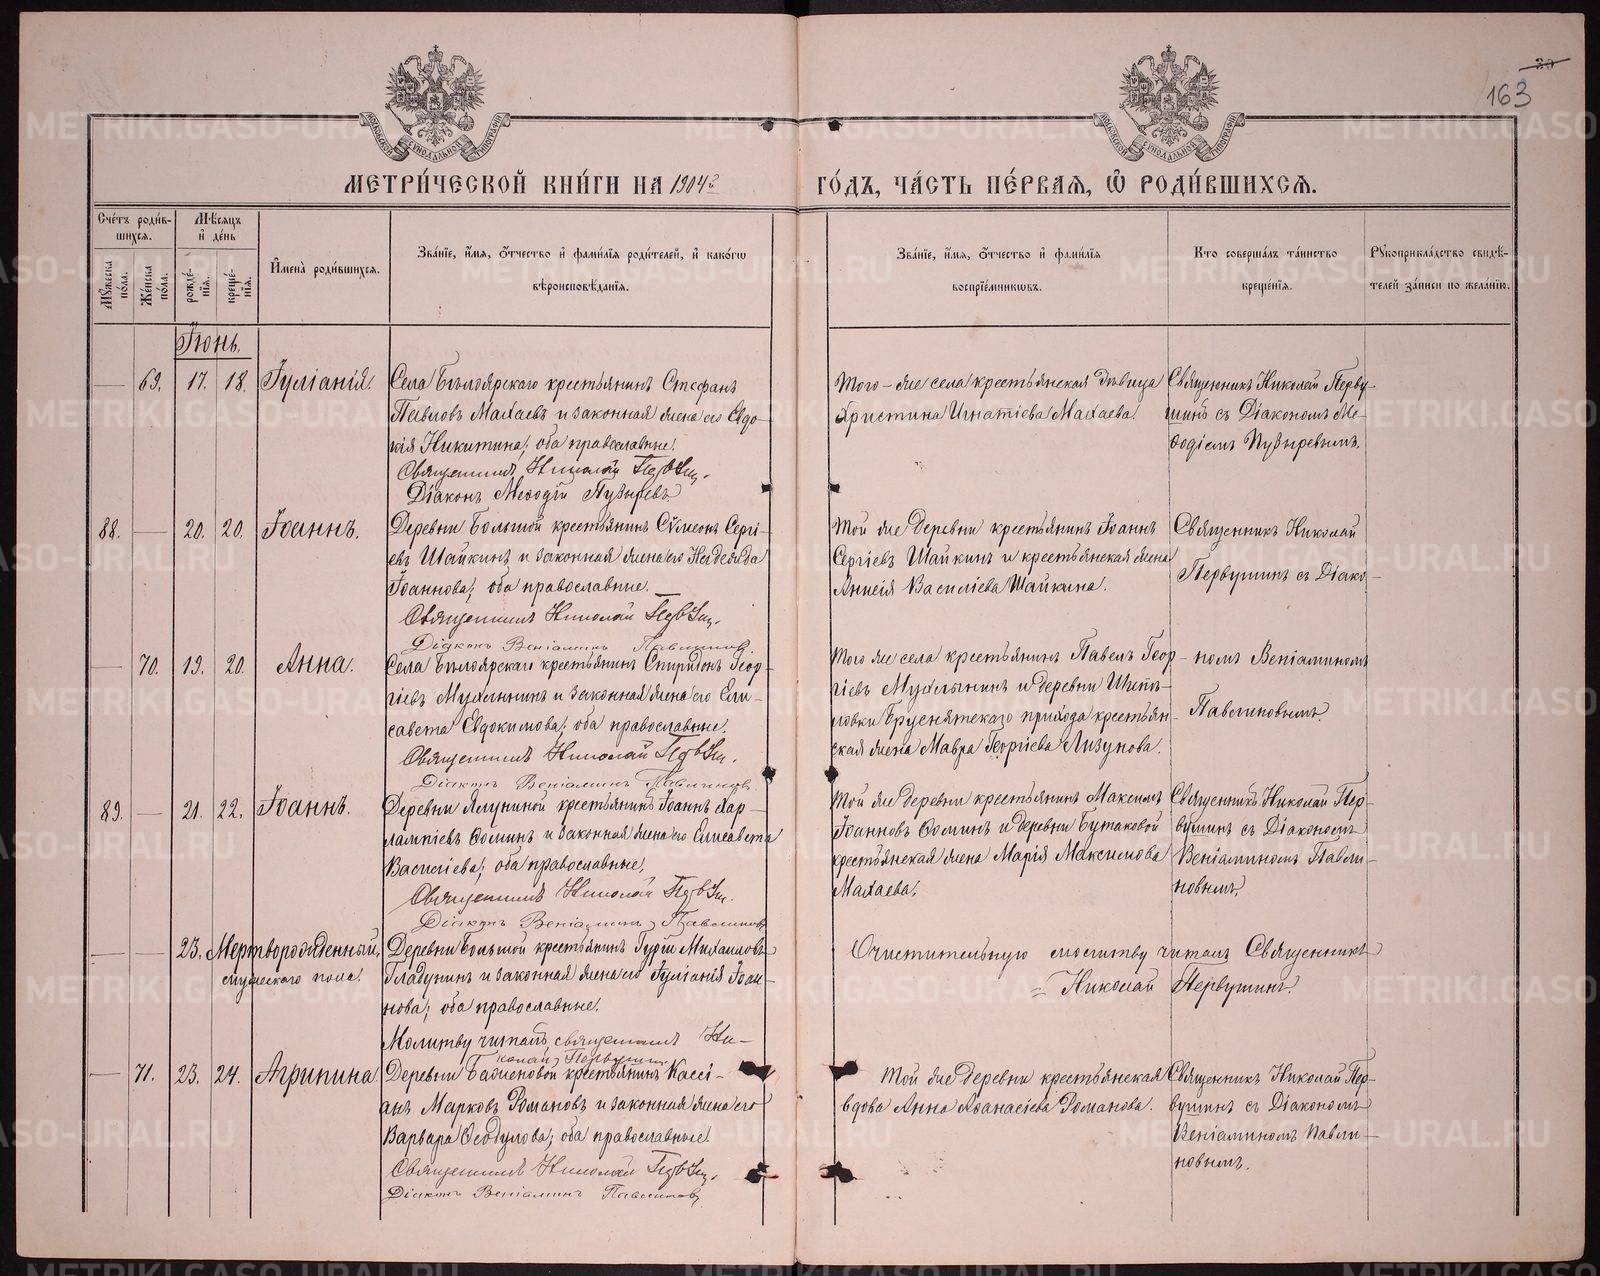 163
МЕТРИЧЕСКОЙ КНИГИ НА 1904й ГОДЪ, ЧАСТЬ ПЕРВАЯ, Ѡ РОДИВШИХСЯ.
Счетъ родив-
шихся.
Мѣсяцъ
и день
Мужеска
пола.
Женска
пола.
рожде-
нія.
креще-
нія.
Имена родившихся.
Званіе, имя, отчество и фамилія родителей, и какогѡ
вѣроисповѣданія.
Званіе, имя, отчество и фамилія
воспріемниковъ.
Кто совершалъ таинство
крещенія.
Рукоприкладство свидѣ-
телей записи по желанію.
Іюнь.
— 69. 17. 18. Іуліанія.
Села Бѣлоярскаго крестьянинъ Стефанъ
Павловъ Махаевъ и законная жена его Евдо-
кія Никитина; оба православные.
Священникъ Николай Первушин.
Діаконъ Меѳодій Пузыревъ
Того-же села крестьянская дѣвица
Христина Игнатіева Махаева.
Священникъ Николай Перву-
шинъ съ Діакономъ Ме-
ѳодіемъ Пузыревымъ.
88. — 20. 20. Іоаннъ.
Деревни Большой крестьянинъ Сѵмеонъ Сергі-
евъ Шайкинъ и законная жена его Надежда
Іоаннова; оба православные.
Священникъ Николай Первушин.
Діаконъ Веніаминъ Павлиновъ.
Той же деревни крестьянинъ Іоаннъ
Сергіевъ Шайкинъ и крестьянская жена
Анисія Василіева Шайкина.
Священникъ Николай
Первушинъ съ Діако-
— 70. 19. 20. Анна.
Села Бѣлоярскаго крестьянинъ Спиридонъ Геор-
гіевъ Мухлынинъ и законная жена его Ели-
савета Евдокимова; оба православные.
Священникъ Николай Первушин.
Діаконъ Веніаминъ Павлиновъ
Того же села крестьянинъ Павелъ Геор-
гіевъ Мухлынинъ и деревни
ловки Брусянскаго прихода крестьян-
ская жена Мавра Георгіева Лизунова.
номъ Веніаминомъ
Павлиновымъ.
89. — 21. 22. Іоаннъ.
Деревни Ялуниной крестьянинъ Іоаннъ Хар-
лампіевъ Ѳоминъ и законная жена его Елисавета
Василіева; оба православные.
Священникъ Николай Первушин.
Діаконъ Веніаминъ Павлиновъ
Той же деревни крестьянинъ Максимъ
Іоанновъ Ѳоминъ и деревни Бутаковой
крестьянская жена Марія Максимова
Махаева.
Священникъ Николай Пер-
вушинъ съ Діакономъ
Веніаминомъ Павли-
новымъ.
— — 23. Мертворожденный
мужескаго пола.
Деревни Большой крестьянинъ Гурій Михаиловъ
Гладунинъ и законная жена его Іуліанія Іоан-
нова; оба православные.
Молитву читалъ священникъ Ни-
колай Первушин.
Очистительную молитву читалъ Священникъ
= Николай Первушинъ.
— 71. 23. 24. Агрипина.
Деревни Баженовой крестьянинъ Кассі-
анъ Марковъ Романовъ и законная жена его
Варвара Ѳеодулова; оба православные
Священникъ Николай Первушин.
Діаконъ Веніаминъ Павлиновъ
Той же деревни крестьянская
вдова Анна Аѳанасіева Романова.
Священникъ Николай Пер-
вушинъ съ Діакономъ
Веніаминомъ Павли-
новымъ.